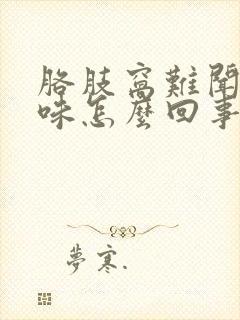 胳肢窩難聞
味怎麼回事
夢寒.